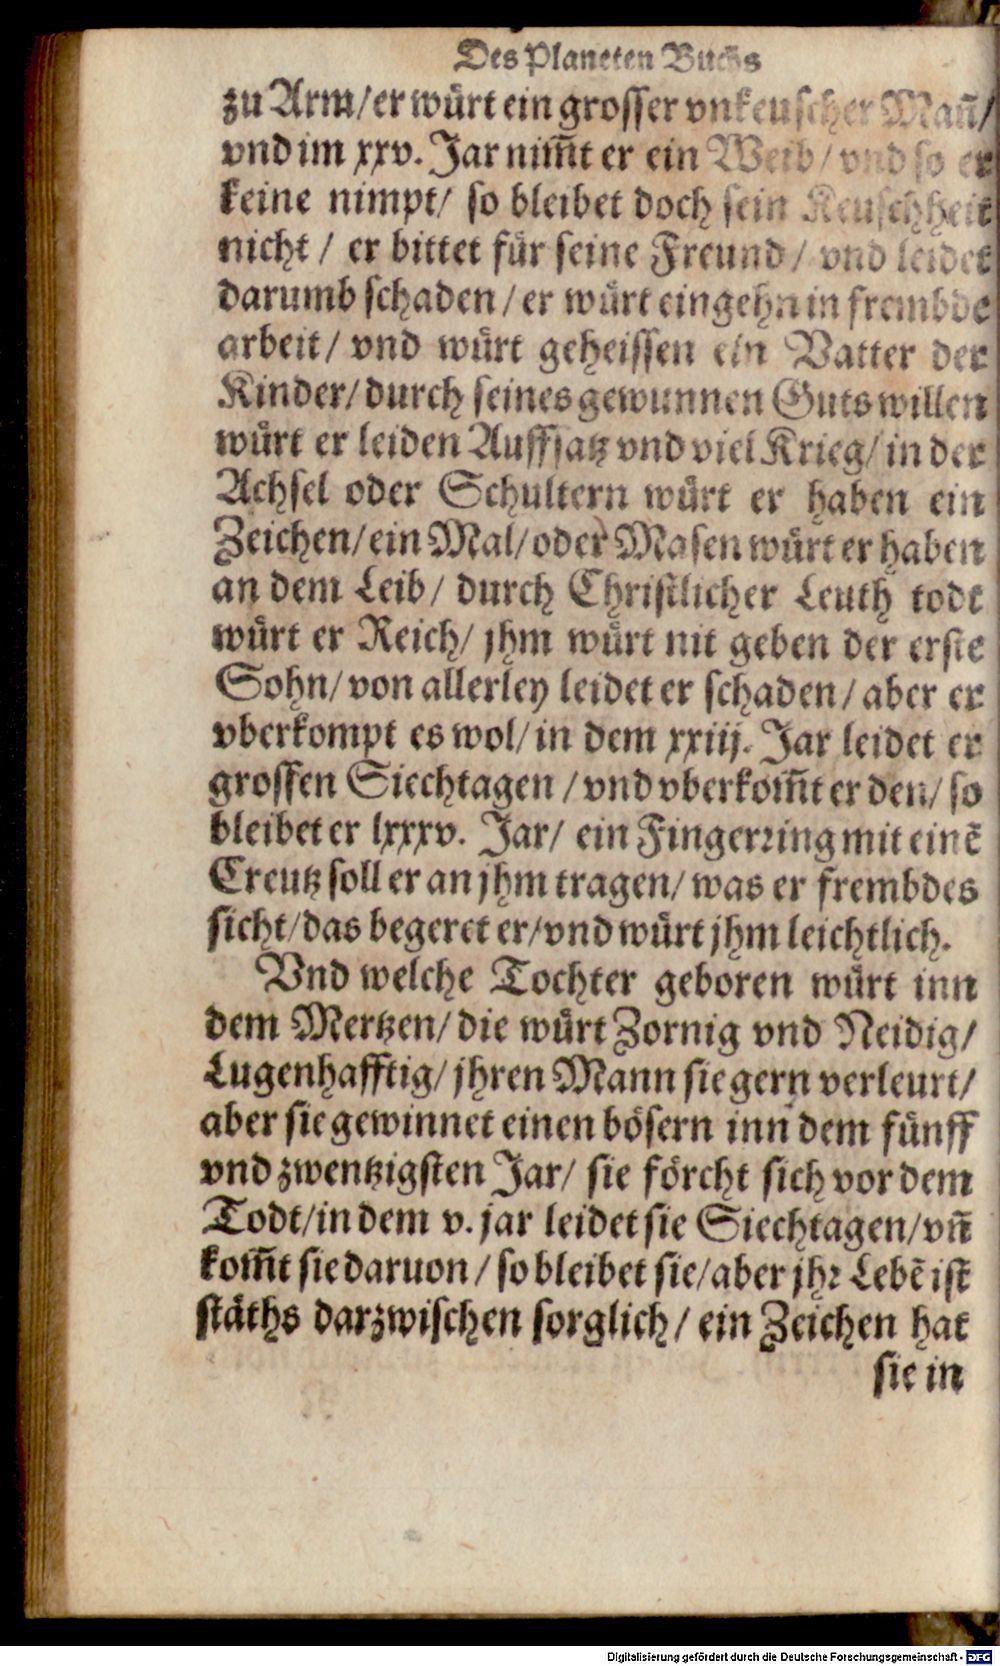 Des Planeten Buchs
zu Arm/ er würt ein grosser vnkeuscher Mañ/
vnd im xxv. Jar nim̃t er ein Weib/ vnd so er
keine nimpt/ so bleibet doch sein Keuschheit
nicht/ er bittet für seine Freund/ vnd leidet
darumb schaden/ er würt eingehn in frembde
arbeit/ vnd würt geheissen ein Vatter der
Kinder/ durch seines gewunnen Guts willen
würt er leiden Auffsatz vnd viel Krieg/ in der
Achsel oder Schultern würt er haben ein
Zeichen/ ein Mal/ oder Masen würt er haben
an dem Leib/ durch Christlicher Leuth todt
würt er Reich/ jhm würt nit geben der erste
Sohn/ von allerley leidet er schaden/ aber er
vberkompt es wol/ in dem xxiij. Jar leidet er
grossen Siechtagen/ vnd vberkom̃t er den/ so
bleibet er lxxxv. Jar/ ein Fingerring mit einẽ
Creutz soll er an jhm tragen/ was er frembdes
sicht/ das begeret er/ vnd würt jhm leichtlich.
Vnd welche Tochter geboren würt inn
dem Mertzen/ die würt Zornig vnd Neidig/
Lugenhafftig/ jhren Mann sie gern verleurt/
aber sie gewinnet einen bösern inn dem fünff
vnd zwentzigsten Jar/ sie förcht sich vor dem
Todt/ in dem v. jar leidet sie Siechtagen/ vñ
kom̃t sie daruon/ so bleibet sie/ aber jhr Lebẽ ist
stäths darzwischen sorglich/ ein Zeichen hat
sie in
Digitalisierung gefördert durch die Deutsche Forschungsgemeinschaft - DFG